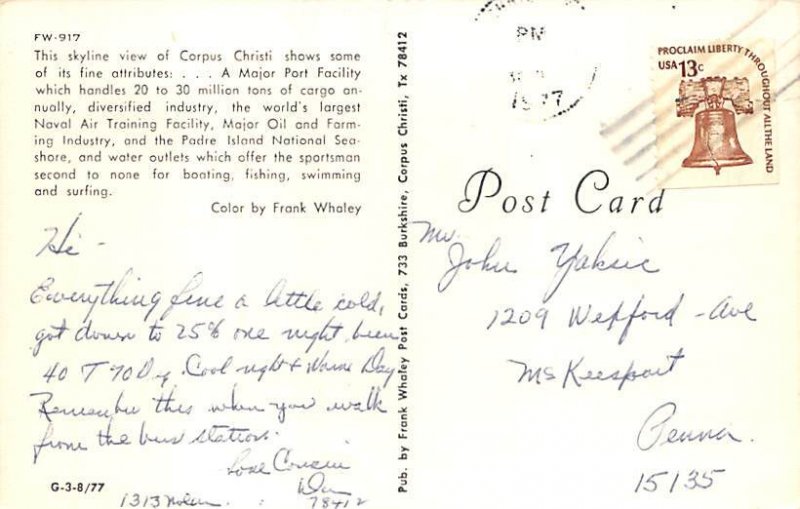 FW-917
This skyline view of Corpus Christi shows some
of its fine attributes: . . . A Major Port Facility
which handles 20 to 30 million tons of cargo an-
nually, diversified industry, the world's largest
Naval Air Training Facility, Major Oil and Farm-
ing Industry, and the Padre Island National Sea-
shore, and water outlets which offer the sportsman
second to none for boating, fishing, swimming
and surfing.
Color by Frank Whaley
Hi -
Everything fine a little cold,
got down to 25% one night, been
40 T 70 Dy. Cool night & Warm Day
Remember this when you walk
from the bus station.
Love Cousin
1313 Nolan
78412
G-3-8/77
Pub. by Frank Whaley Post Cards, 733 Burkshire, Corpus Christi, Tx 78412
PM
1977
PROCLAIM LIBERTY THROUGHOUT ALL THE LAND
USA 13c
Post Card
Mr.
John Yaksic
1209 Wepford - Ave
McKeesport
Penna.
15135